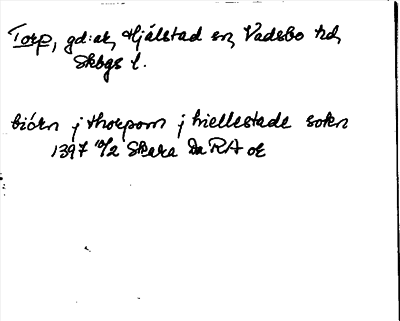 Torp, gd:ar, Hjälstad sn, Vadsbo hd,
Skbgs l.
biörn j thorpom j hiellestade sokn
1397 10/2 Skara Da RA or